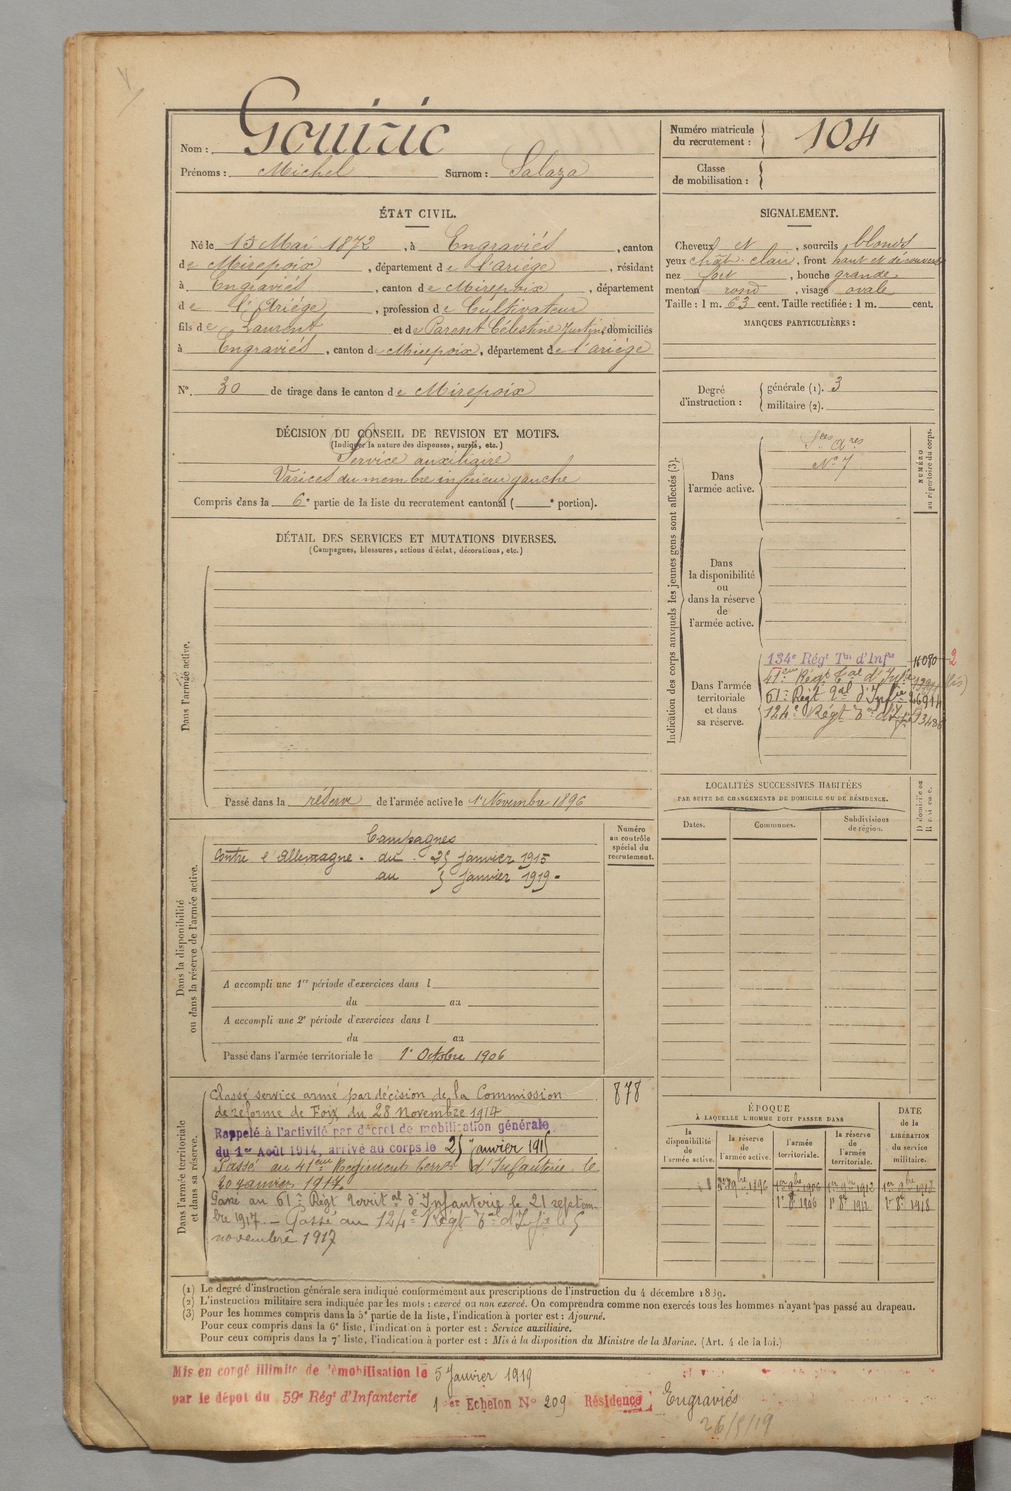 Nom : Gouiric
Prénoms : Michel Surnom : Salaza
Numéro matricule du recrutement : 104
Classe de mobilisation :
ÉTAT CIVIL.
Né le 13 Mai 1872, à Engraviés, canton
de Mirepoix, département de l'ariége, résidant
à Engraviés, canton de Mirepoix, département
de l'Ariége, profession de Cultivateur
fils de Laurent et de Parent Célestine Justine, domiciliés
à Engraviés, canton de Mirepoix, département de l'ariége
N° 30 de tirage dans le canton de Mirepoix
SIGNALEMENT.
Cheveux N, sourcils blonds
yeux chat. clair, front haut et découvert
nez fort, bouche grande
menton rond, visage ovale
Taille : 1 m. 63 cent. Taille rectifiée : 1 m. cent.
MARQUES PARTICULIÈRES :
Degré d'instruction : générale (1). 3
militaire (2).
DÉCISION DU CONSEIL DE REVISION ET MOTIFS.
(Indiquer la nature des dispenses, sursis, etc.)
Service auxiliaire
Varices du membre inférieur gauche
Compris dans la 6e partie de la liste du recrutement cantonal ( e portion).
DÉTAIL DES SERVICES ET MUTATIONS DIVERSES.
(Campagnes, blessures, actions d'éclat, décorations, etc.)
Dans l'armée active.
Passé dans la réserve de l'armée active le 1er Novembre 1896
Indication des corps auxquels les jeunes gens sont affectés (3).
NUMÉRO au répertoire du corps.
Dans l'armée active.
Sces Ares
N° 7
Dans la disponibilité ou dans la réserve de l'armée active.
Dans l'armée territoriale et dans sa réserve.
134e Régt Tal d'Infie 16080 2
41ème Régt Tal d'Infie
61e Régt Tal d'Infie
124e Régt Tal d'Infie
LOCALITÉS SUCCESSIVES HABITÉES
PAR SUITE DE CHANGEMENTS DE DOMICILE OU DE RÉSIDENCE.
Dates. Communes. Subdivisions de région. Domicile ou Résidence.
Dans la disponibilité ou dans la réserve de l'armée active.
Numéro au contrôle spécial du recrutement.
Campagnes
Contre l'Allemagne. du 25 janvier 1915
au 5 janvier 1919.
A accompli une 1re période d'exercices dans l
du au
A accompli une 2e période d'exercices dans l
du au
Passé dans l'armée territoriale le 1er Octobre 1906
Dans l'armée territoriale et dans sa réserve.
878
Classé service armé par décision de la Commission
de réforme de Foix du 28 Novembre 1914
Rappelé à l'activité par décret de mobilisation générale
du 1er Août 1914, arrivé au corps le 25 janvier 1915
Passé au 41ème Régiment Terr d'Infanterie le
20 janvier 1917
Passé au 61e Régt Territal d'Infanterie le 21 septem
bre 1917 — Passé au 124e Régt Tal d'Infie le 5
novembre 1917
ÉPOQUE
À LAQUELLE L'HOMME DOIT PASSER DANS
la disponibilité de l'armée active. la réserve de l'armée active. l'armée territoriale. la réserve de l'armée territoriale.
DATE de la LIBÉRATION du service militaire.
1er 8e 1906 1er 8e 1912 1er 8e 1918
(1) Le degré d'instruction générale sera indiqué conformément aux prescriptions de l'instruction du 4 décembre 1889.
(2) L'instruction militaire sera indiquée par les mots : exercé ou non exercé. On comprendra comme non exercés tous les hommes n'ayant pas passé au drapeau.
(3) Pour les hommes compris dans la 5e partie de la liste, l'indication à porter est : Ajourné.
Pour ceux compris dans la 6e liste, l'indication à porter est : Service auxiliaire.
Pour ceux compris dans la 7e liste, l'indication à porter est : Mis à la disposition du Ministre de la Marine. (Art. 4 de la loi.)
Mis en congé illimité de démobilisation le 5 Janvier 1919
par le dépot du 59e Régt d'Infanterie 1er Echelon N° 209 Résidence Engraviés
26/5/19